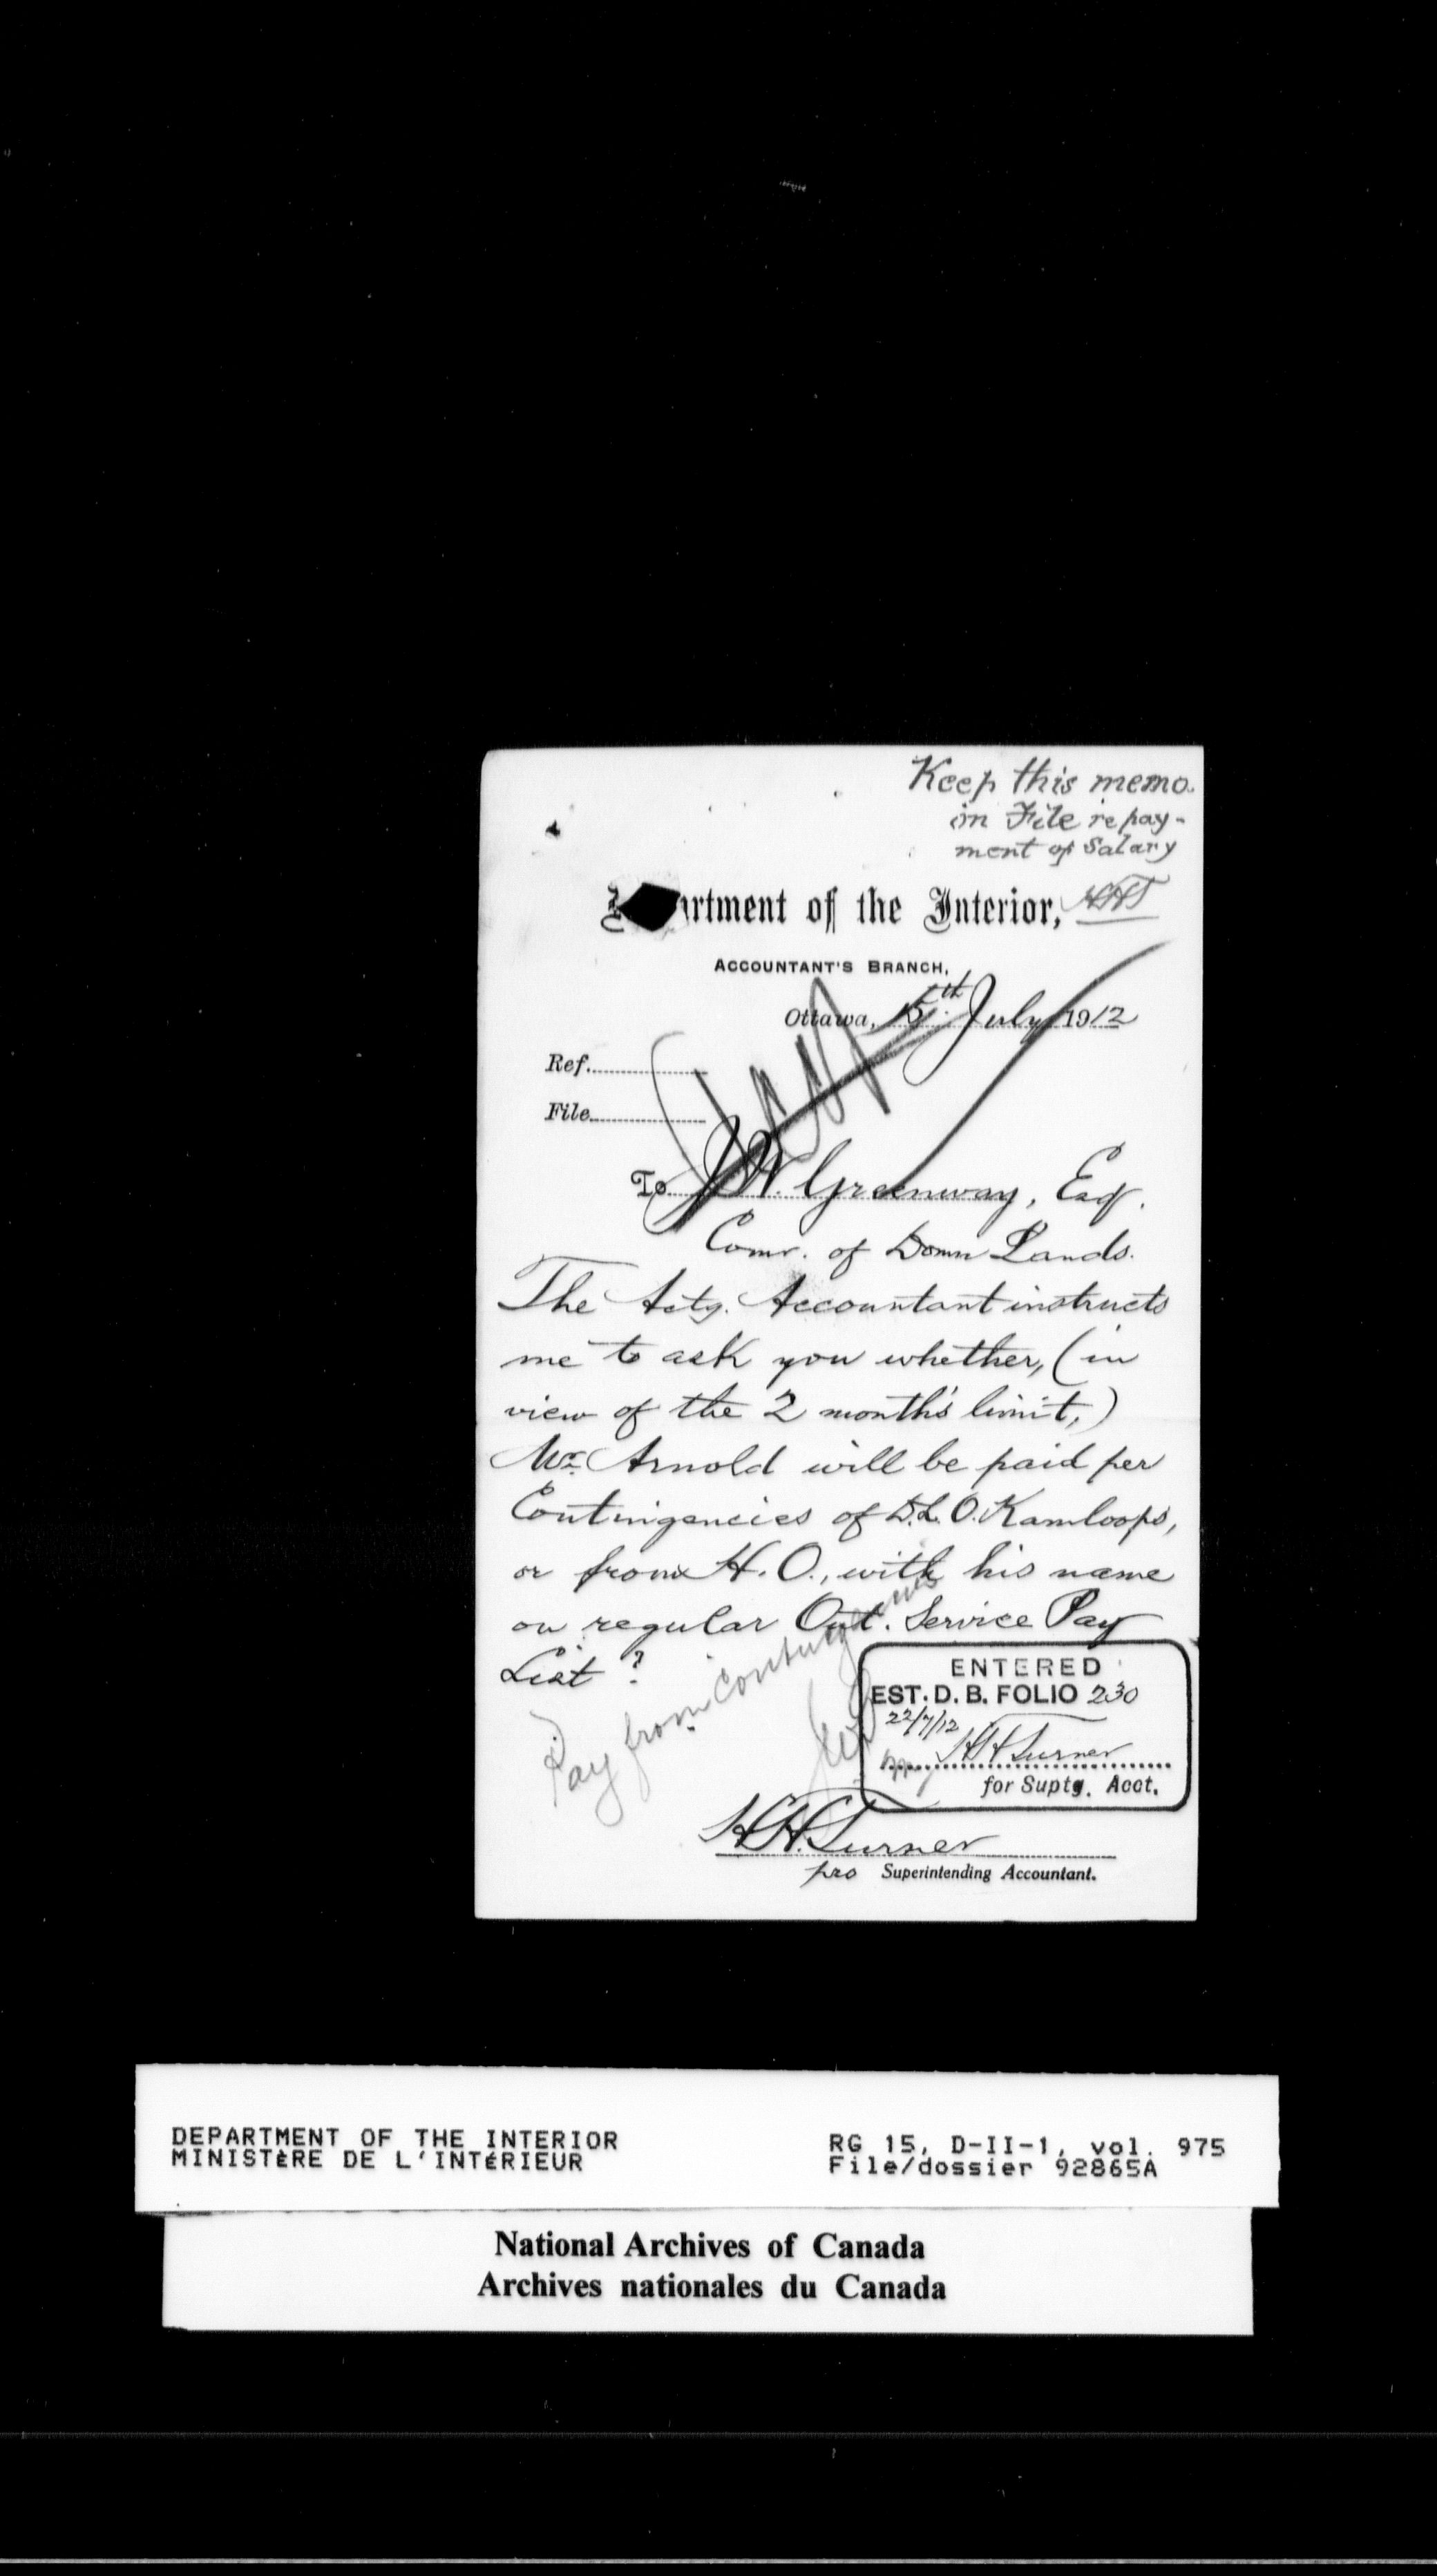 Keep this memo.
in File re pay-
ment of Salary
HHT
Department of the Interior,
ACCOUNTANT'S BRANCH,
Ottawa, 15th July 1912
Ref.
File
To J.W. Greenway, Esq.
Comr. of Domn Lands.
The Actg. Accountant instructs
me to ask you whether, (in
view of the 2 month's limit,)
Mr. Arnold will be paid per
Contingencies of D.L.O. Kamloops,
or from H.O., with his name
on regular Out. Service Pay
List?
Pay from Contingencies
ENTERED
EST. D. B. FOLIO 230
22/7/12
HHTurner
for Suptg. Acct.
HH.Turner
pro Superintending Accountant.
DEPARTMENT OF THE INTERIOR
MINISTÈRE DE L'INTÉRIEUR
RG 15, D-II-1, vol. 975
File/dossier 92865A
National Archives of Canada
Archives nationales du Canada